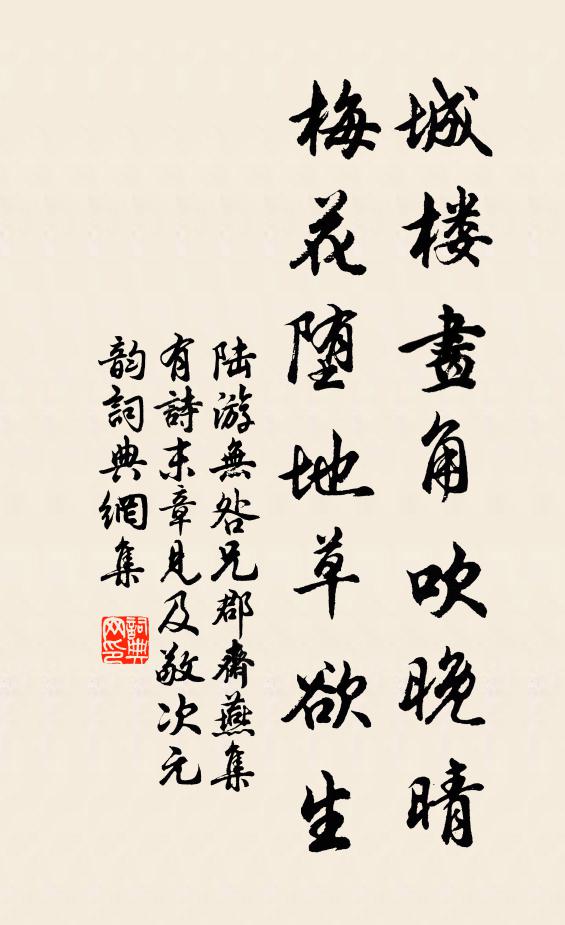 城楼畫角吹晚晴
梅花堕地草欲生
陆游無咎兄郡齋燕集
有詩末章見及敬次元
韵詞典網集
詞典網印